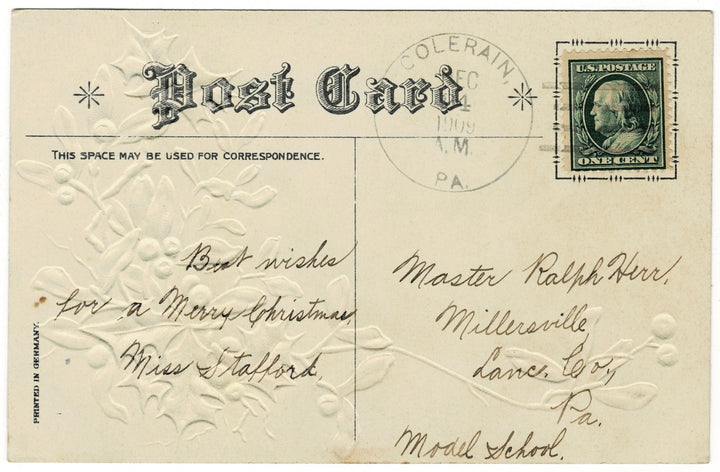 Post Card
COLERAIN,
DEC
1909
A.M.
PA.
U.S. POSTAGE
ONE CENT
THIS SPACE MAY BE USED FOR CORRESPONDENCE.
Best wishes
for a Merry Christmas,
Miss Stafford.
Master Ralph Herr,
Millersville
Lanc. Co.,
Pa.
Model School.
PRINTED IN GERMANY.